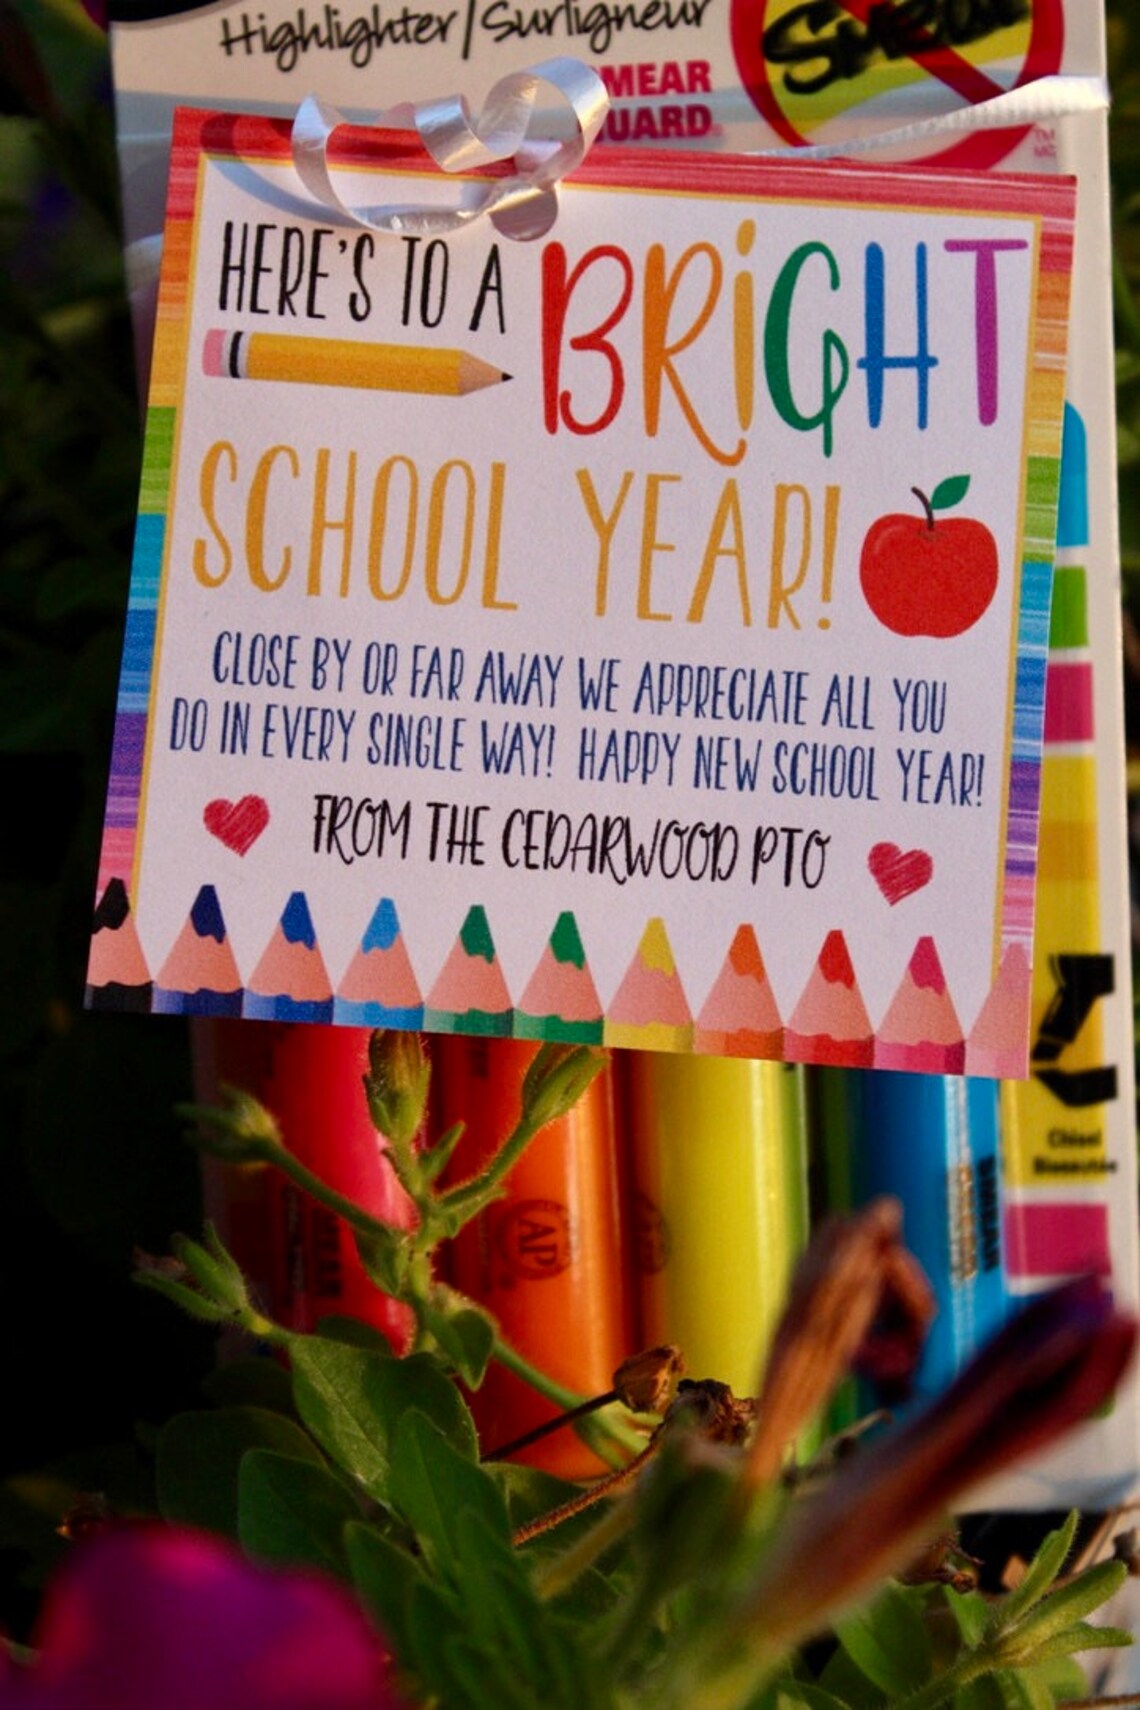 Highlighter/Surligneur
SMEAR
GUARD
HERE'S TO A BRiGHT
SCHOOL YEAR!
CLOSE BY OR FAR AWAY WE APPRECIATE ALL YOU
DO IN EVERY SINGLE WAY! HAPPY NEW SCHOOL YEAR!
FROM THE CEDARWOOD PTO
AP
Chisel
Biseautée